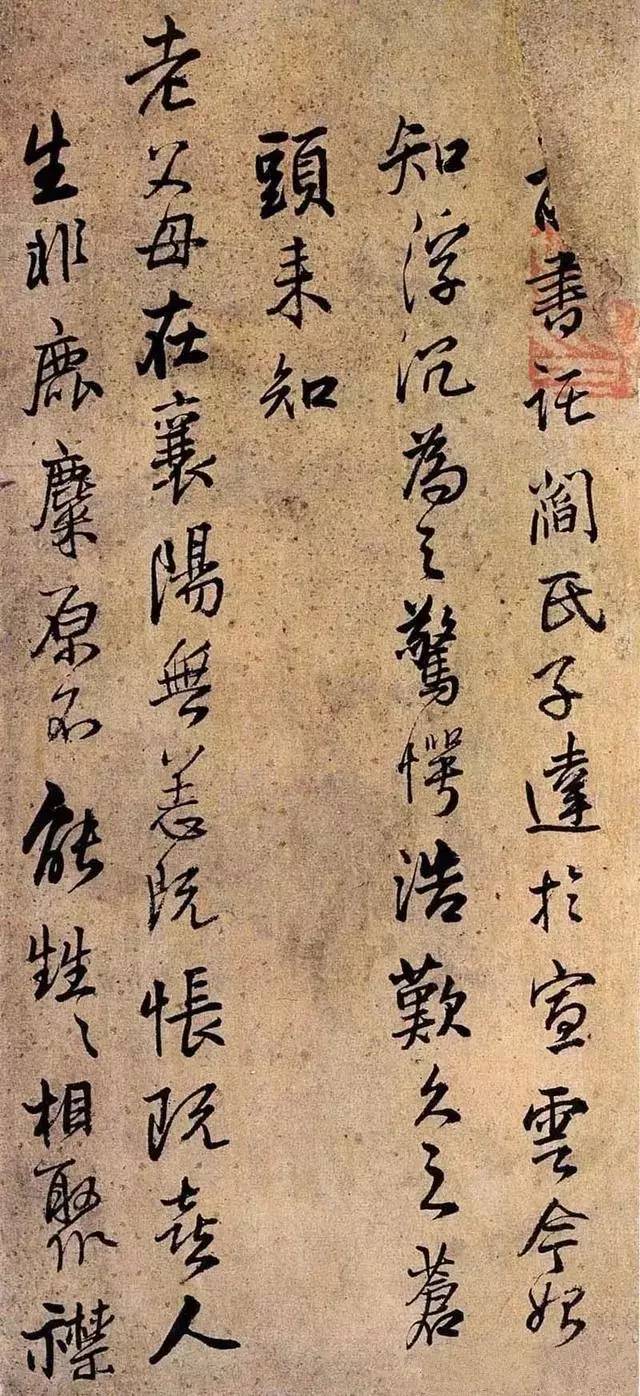 書託閻氏子達於宣雲今始
知浮沉為之驚愕浩歎久之蒼
頭来知
老父母在襄陽無恙既悵既喜人
生非鹿麋原不能甡々相聚襟